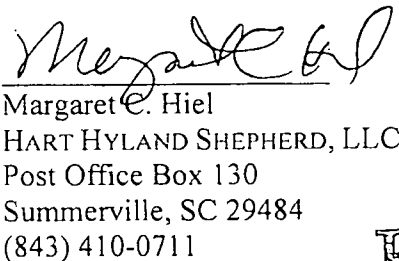 Margaret C. Hiel
Margaret C. Hiel
HART HYLAND SHEPHERD, LLC
Post Office Box 130
Summerville, SC 29484
(843) 410-0711